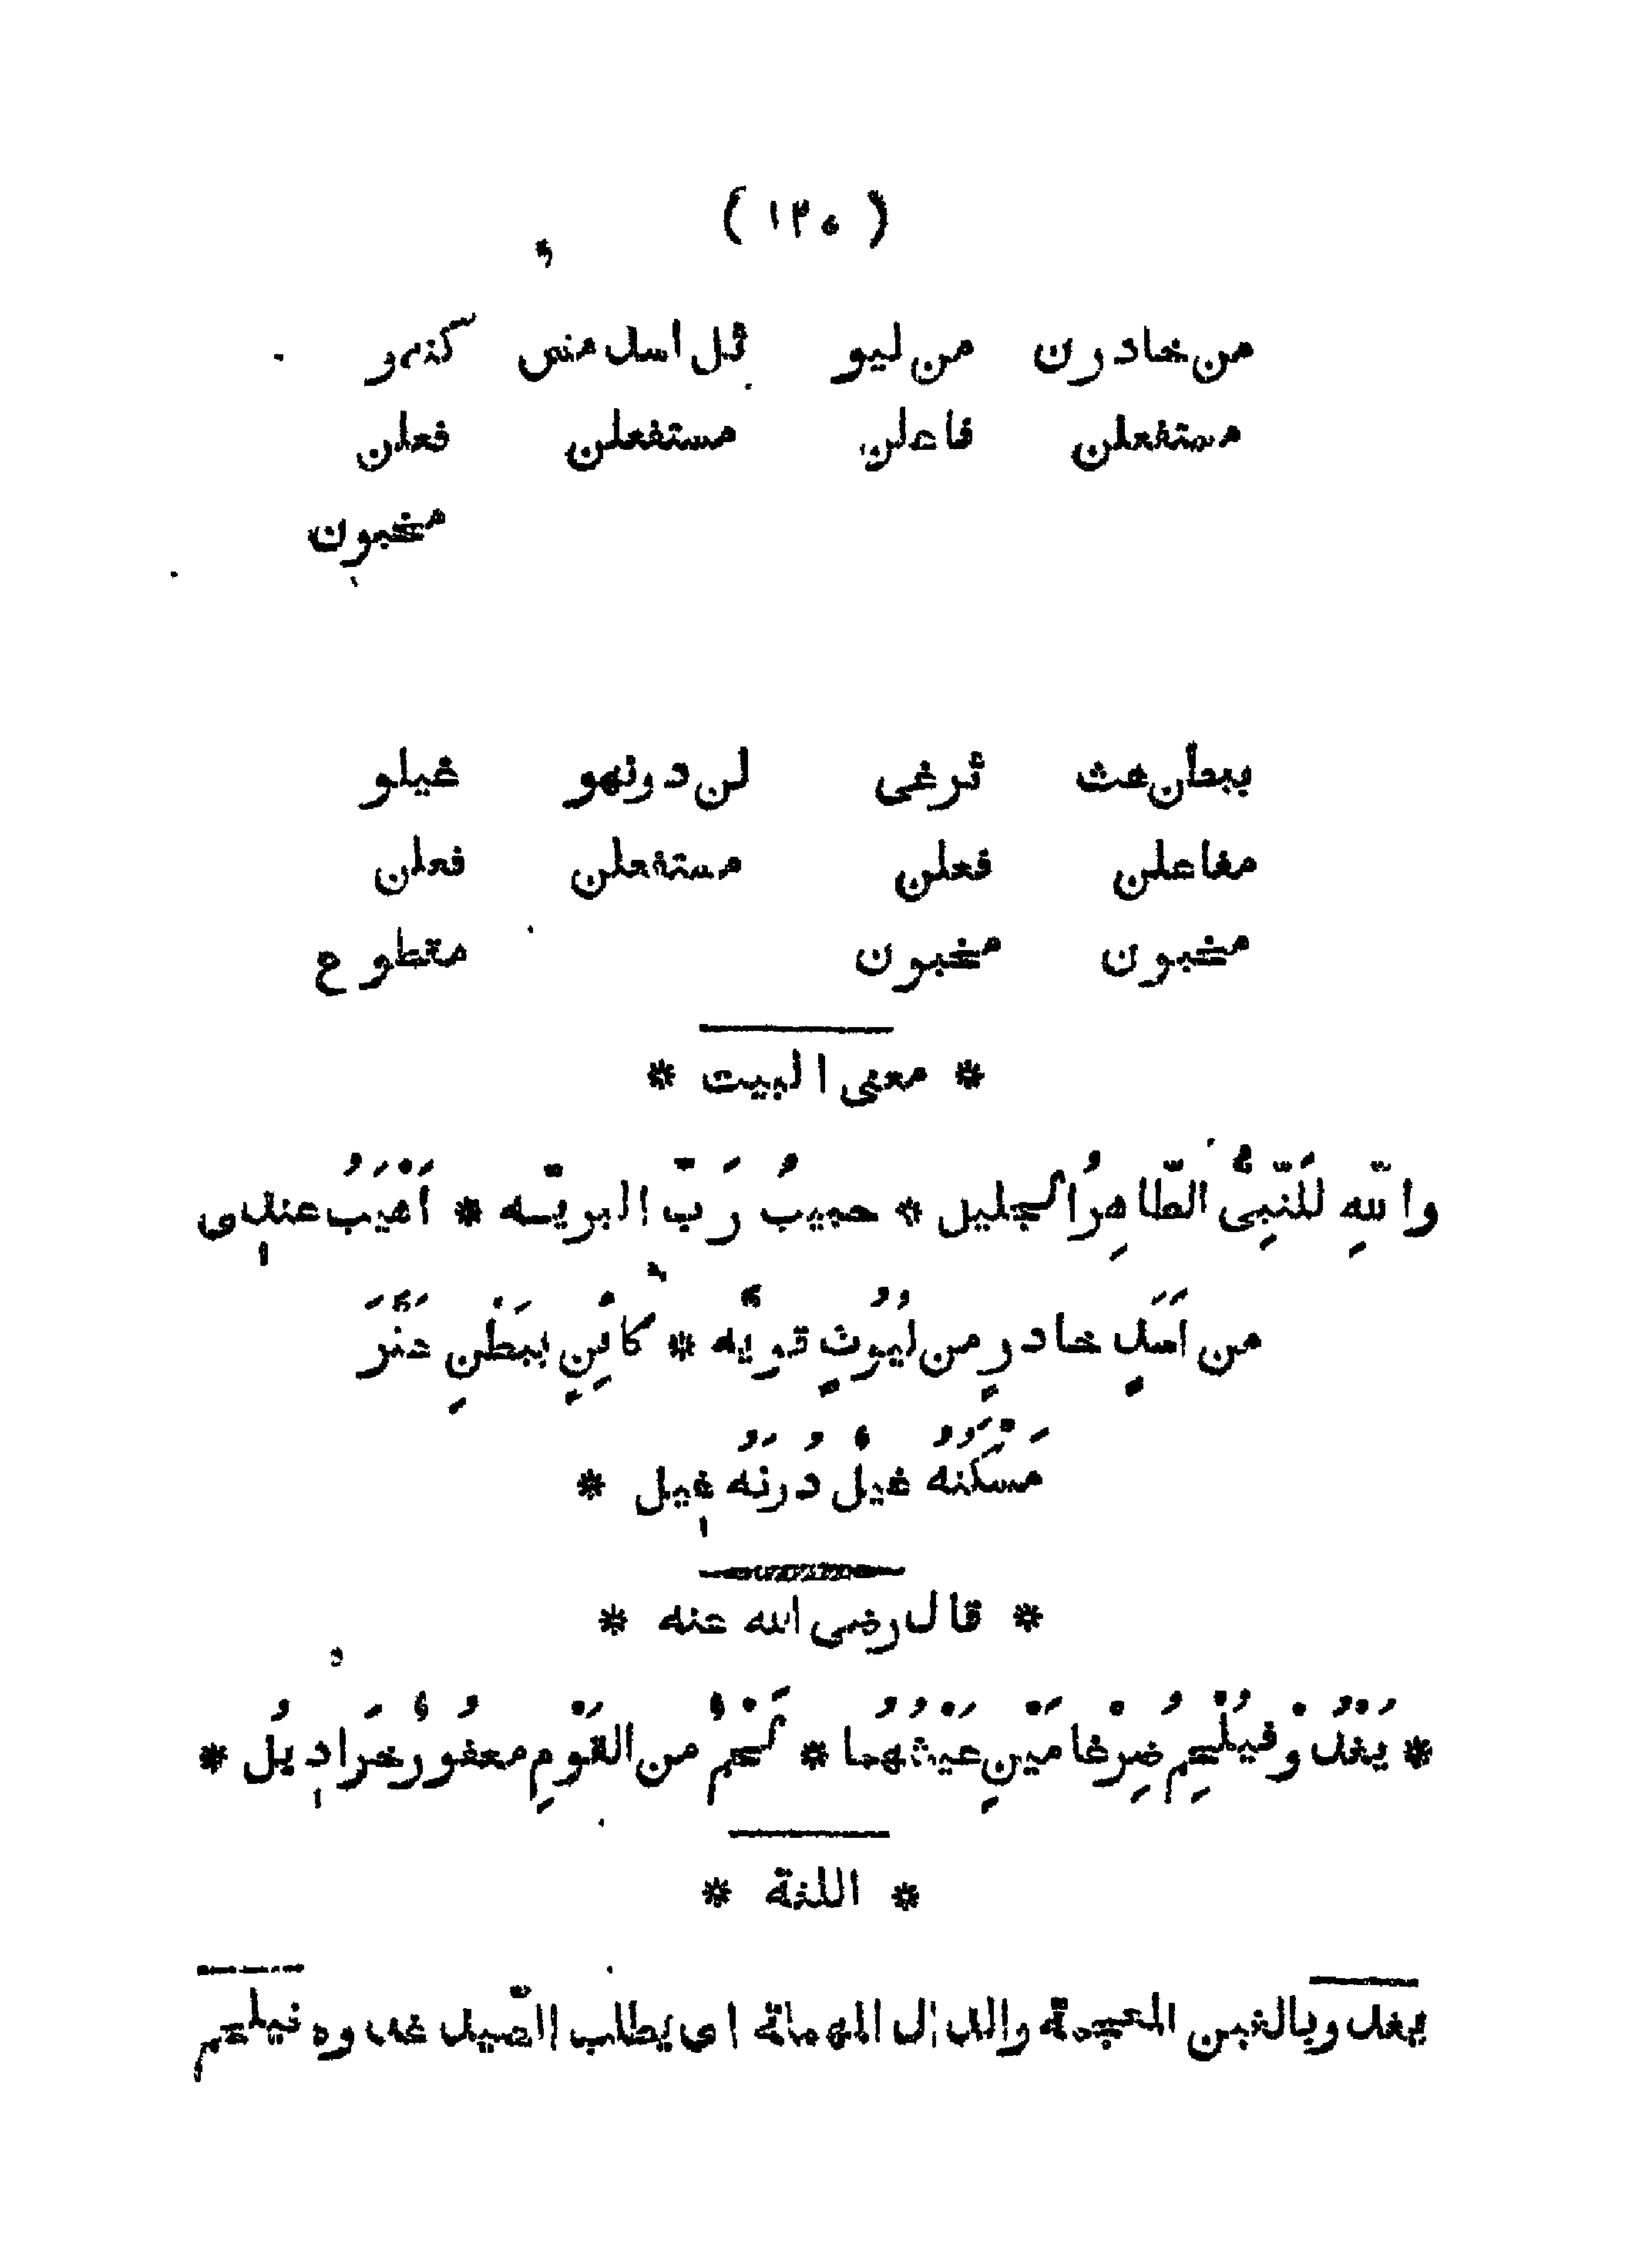 ( ١٢٥ )
من خادرن من ليو ثل اسد منس كنهو
مستفعلن فاعلن مستفعلن فعلن
مخبون
ببطن عث ثرغى لن دونهو غيلو
مفاعلن فعلن مستفعلن فعلن
مخبون مخبون مقطوع
* معنى البيت *
واللهِ للَنّبِىُّ الطّاهِرُ الجليل * حبيبُ رَبّ البريّه * اَهْيَبُ عندِى
من اَسَدٍ خادرٍ من لُيُوثٍ قويَّه * كائنٍ ببَطْنِ عَثَّرَ
مَسْكَنُهُ غيلٌ دُونَهُ غِيل *
* قال رضى الله عنه *
* يَغْدُوْ فيُلْحِمُ ضِرْغامَيْنِ عَيْشُهُما * لَحْمٌ من القَوْمِ معفُورٌ خَرَادِيلُ *
* اللغة *
يغدو بالغين المعجمة والدال المهملة اى يطلب الصّيد غدوه فيلحم